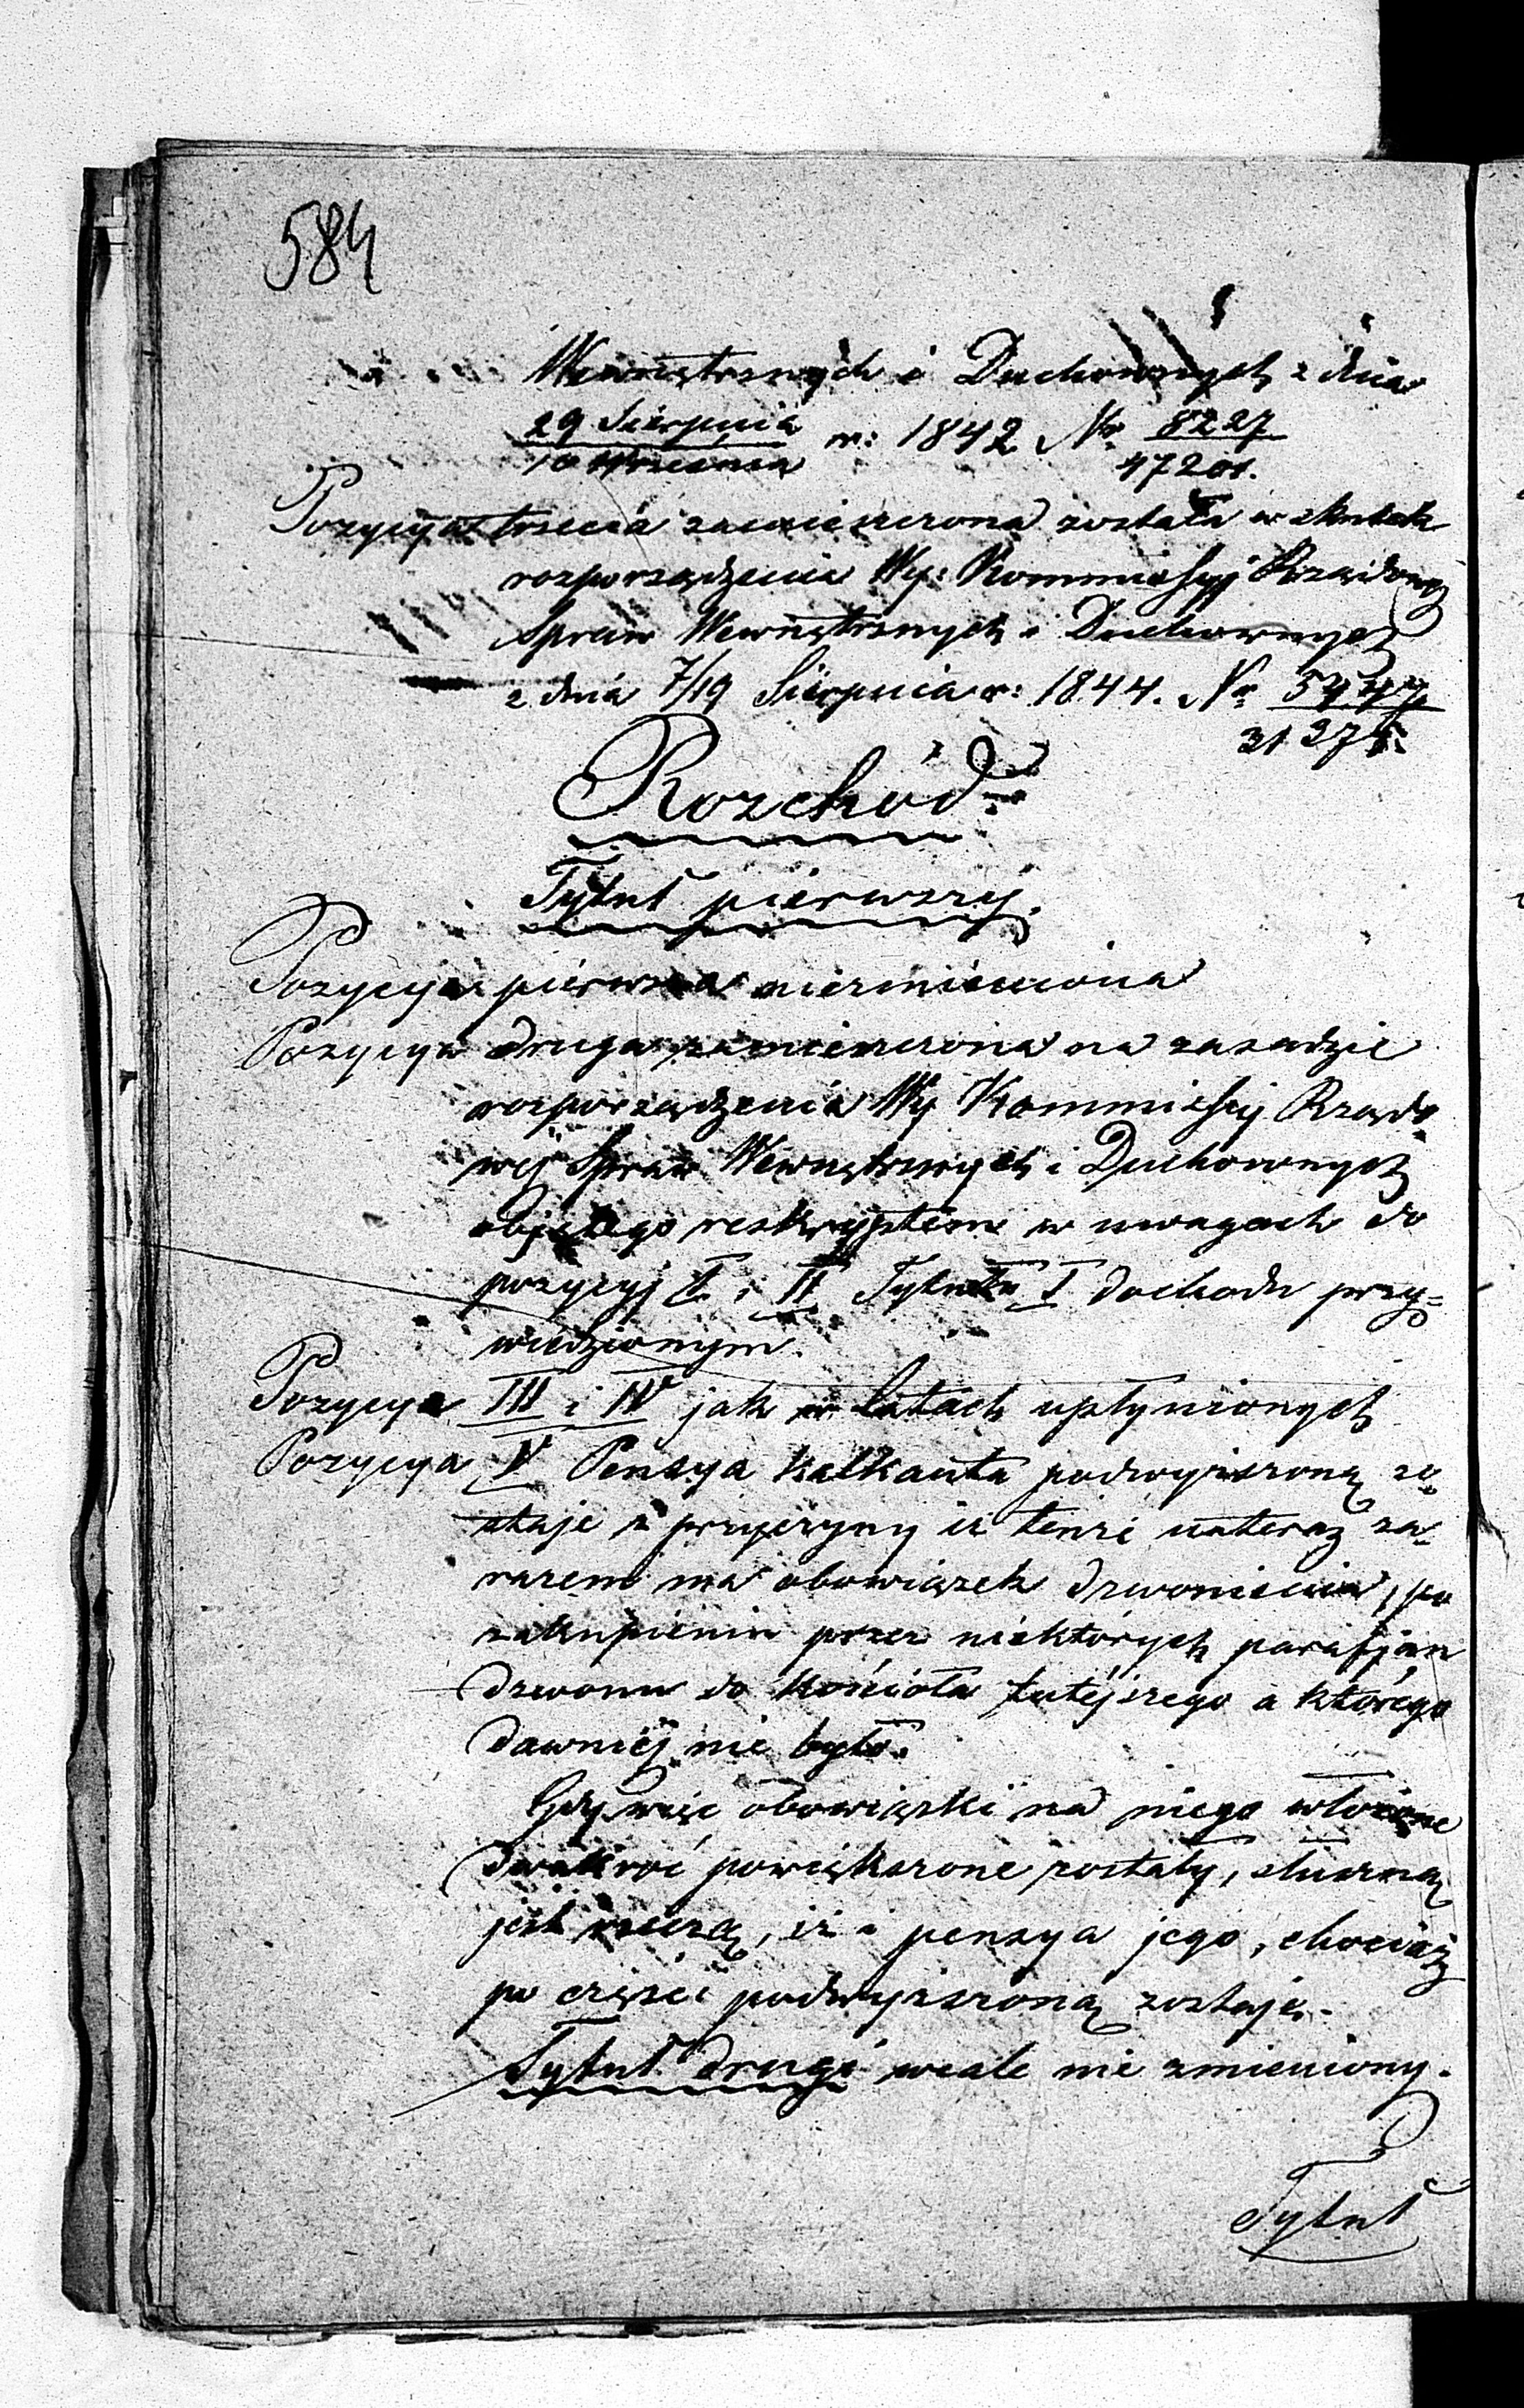 584
Wewnętrznych i Duchownych z dnia
29 Sierpnia / 10 Września r: 1842 Nr 8227 / 47201.
Pozycya trzecia zamieszczona została w skutek
rozporządzenia Wy: Kommissyj Rządowej
Spraw Wewnętrznych i Duchownych
z dnia 7/19 Sierpnia r: 1844. Nr
Rozchód
Tytuł pierwszy.
Pozycya pierwsza niezmieniona
Pozycya druga zamieszczona na zasadzie
rozporządzenia Wy Kommissyj Rządo-
wéj Spraw Wewnętrznych i Duchownych
objętego reskryptem w uwagach do
pozycyj I i II Tytułu I dochodu przy=
wiedzionym.
Pozycya III i IV jak w latach upłynionych
Pozycya V Pensya kalkanta podwyższoną zo-
staje z przyczyny iż tenże teraz za-
razem ma obowiązek dzwonienia, po
zakupieniu przez niektórych parafjan
dzwonu do kościoła tutéjszego a którego
dawniéj nie było.
Gdy więc obowiązki na niego włożone
dwakroć powiększone zostały, słuszną
jest rzeczą, iż i pensya jego, chociaż
po części podwyższoną zostaje.
Tytuł drugi wcale nie zmieniony.
Tytuł